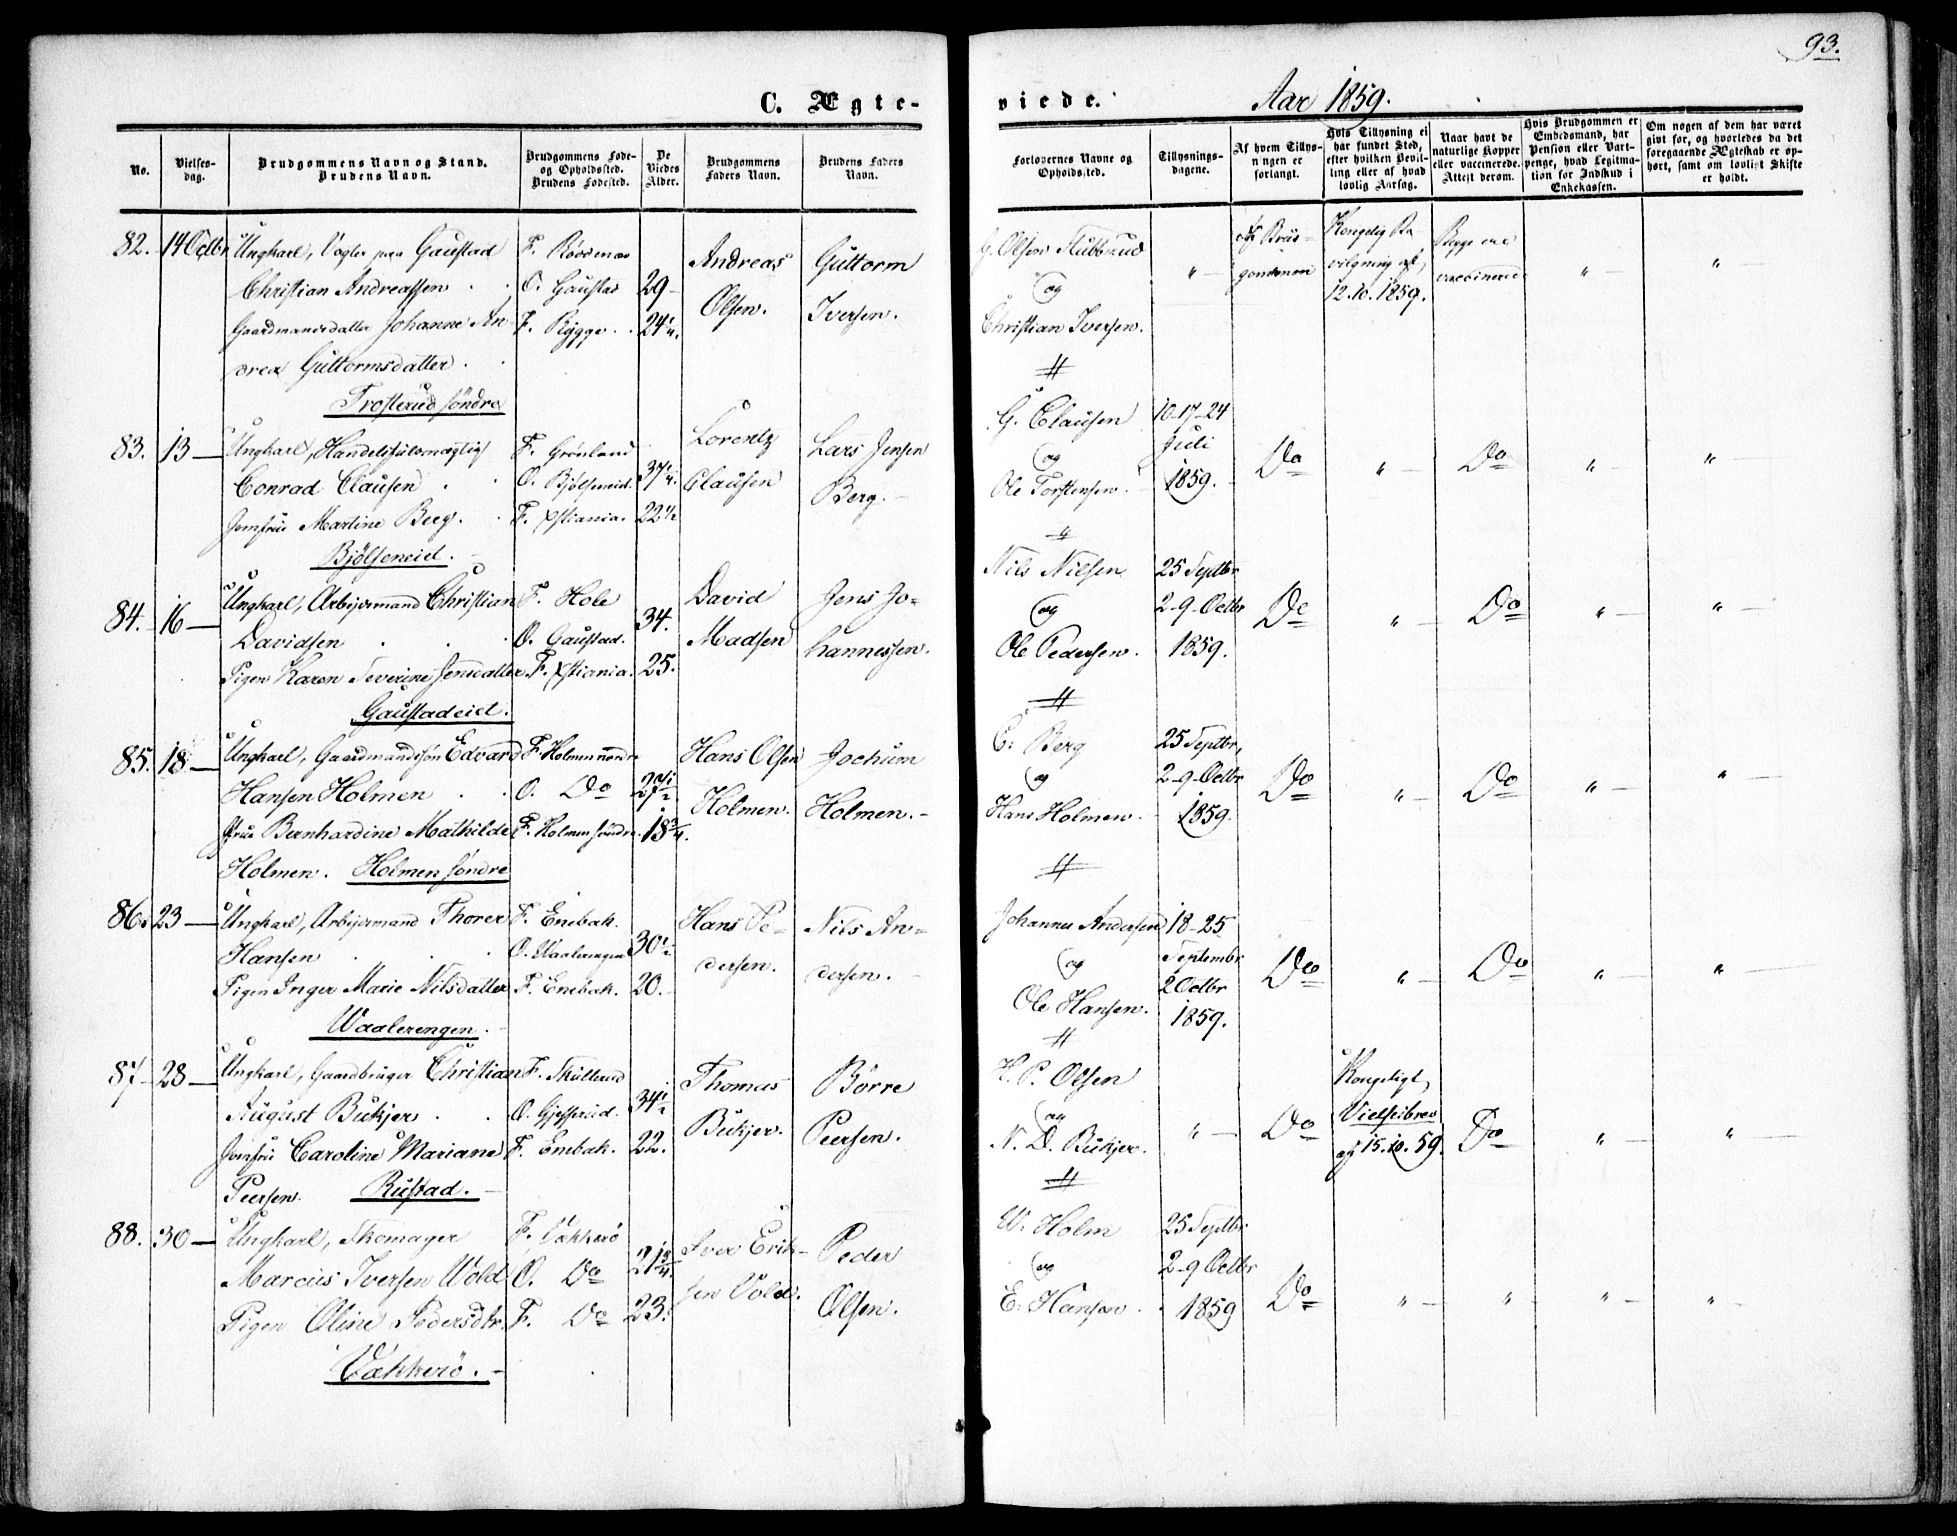 93.
C. Ægte-
viede.
Aar 1859.
No.
Vielses-
dag.
Brudgommens Navn og Stand.
Brudens Navn.
Brudgommens Føde-
og Opholdssted.
Brudens Fødested.
De
Viedes
Alder.
Brudgommens
Faders Navn.
Brudens Faders
Navn.
Forlovernes Navne og
Opholdssted.
Tillysnings-
dagene.
Af hvem Tillys-
ningen er
forlangt.
Hvis Tillysning ei
har fundet Sted,
efter hvilken Bevil-
ling eller af hvad
lovlig Aarsag.
Naar havt de
naturlige Kopper
eller vaccinerede.
Attest derom.
Hvis Brudgommen er
Embedsmand, har
Pension eller Vart-
penge, hvad Legitima-
tion for Indskud i
Enkekassen.
Om nogen af dem har været
givt før, og hvorledes da det
foregaaende Ægteskab er op-
hørt, samt om lovligt Skifte
er holdt.
82. 14 Octbr
Ungkarl, Vogter paa Gaustad
Christian Andreassen
Gaardmandsdatter Johanne An
drea Guttormsdatter.
Trosterud søndre
F. Rødenæs
O. Gaustad
F. Rygge
29
24 1/4.
Andreas
Olsen.
Guttorm
Iversen.
G. Olsen Stubberud
og
Christian Iversen.
"
Af Brud-
gommen
Kongelig Be
vilgning af
12.10.1859.
Begge ere
vaccinerede
"
"
83. 13
Ungkarl, Handelsfuldmægtig
Conrad Clausen
Jomfru Martine Berg.
Bjølseneid.
F. Grønland
O. Bjølseneid.
F. Xstiania.
37 1/4.
22 1/2
Lorentz
Clausen
Lars Jensen
Berg.
G. Clausen
og
Ole Torstensen.
10-17-24
Juli
1859.
Do
"
Do
"
"
84. 16
Ungkarl, Arbejdsmand Christian
Davidsen
Pigen Karen Severine Jensdatter
Gaustadeid.
F. Hole
O. Gaustad.
F. Xstiania.
34.
25.
David
Madsen
Jens Jo-
hannessen.
Nils Nilsen
og
Ole Pedersen.
25 Septbr
2-9-Octbr
1859.
Do
"
Do
"
"
85. 18
Ungkarl, Gaardmandssøn Edvard
Hansen Holmen
Jfru Bernhardine Mathilde
Holmen. Holmen søndre
F. Holmen nordre
O. Do
F. Holmen søndre.
27 1/2
18 3/4.
Hans Olsen
Holmen.
Jochum
Holmen.
C. Berg
og
Hans Holmen
25 Septbr,
2-9-Octbr
1859.
Do
"
Do
"
"
86. 23
Ungkarl, Arbejdsmand Thorer
Hansen
Pigen Inger Marie Nilsdatter
Waalerengen.
F. Enebak.
O. Waalerengen
F. Enebak.
30 1/2
20.
Hans Pe-
dersen.
Nils An-
dersen.
Johannes Andersen
og
Ole Hansen.
18-25
Septembr
2 Octbr
1859.
Do
"
Do
"
"
87 23
Ungkarl, Gaardbruger Christian
August Bükjer
Jomfru Caroline Mariane
Peersen. Rustad.
F. Skullerud
O. Gjesserud.
F. Enebak.
34 1/2
22.
Thomas
Bükjer.
Børre
Peersen.
H. P. Olsen
og
N. D. Bükjer.
"
Do
Kongeligt
Vielsebrev
af 15.10.59.
Do
"
"
88. 30
Ungkarl, Skomager
Marcus Iversen Vold
Pigen Oline Pedersdtr.
Vækkerø.
F. Vækkerø
O. Do
F. Do
21 3/4.
23.
Iver Erik-
sen Vold.
Peder
Olsen.
W. Holm
og
E. Hansen
25 Septbr
2-9 Octbr
1859
Do
"
"
"
"